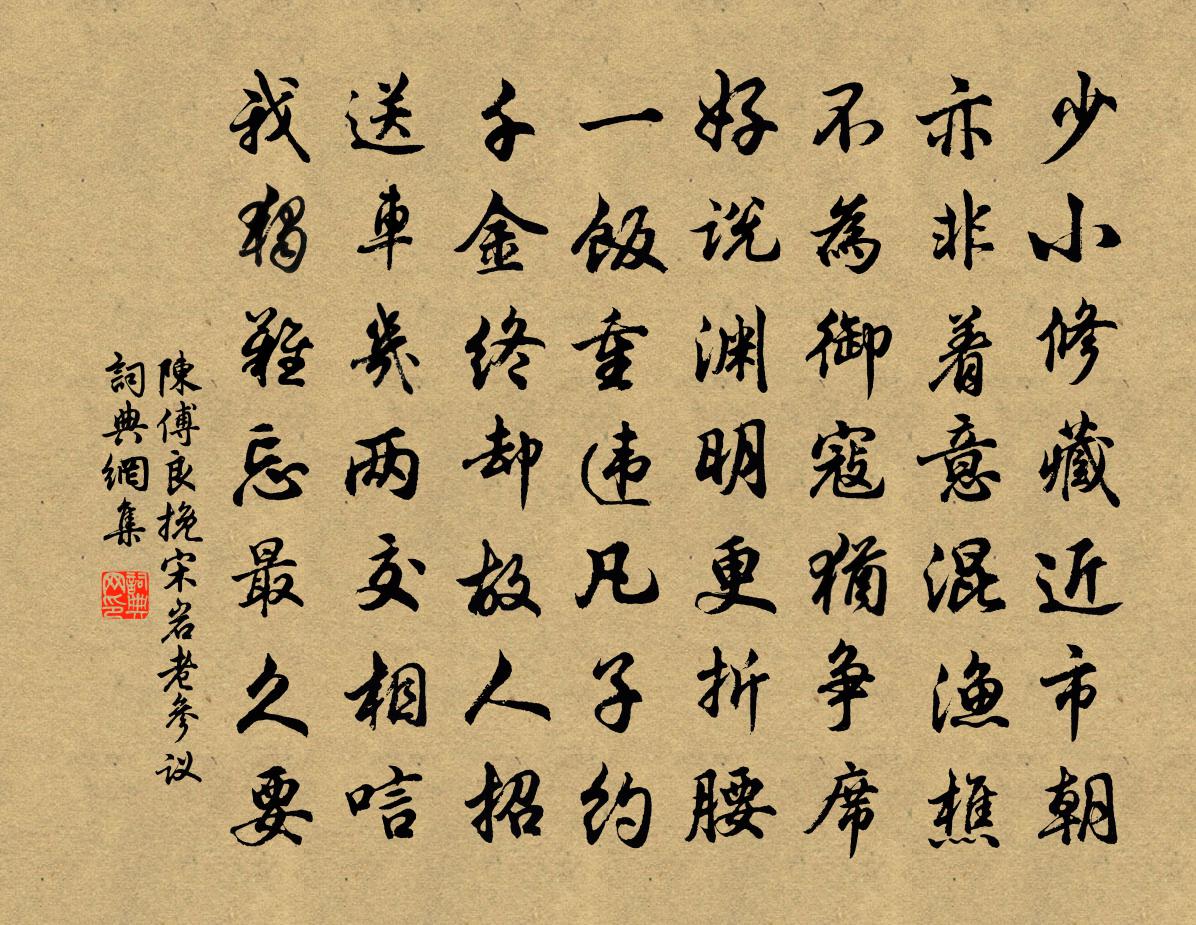 少小修藏近市朝
亦非着意混渔樵
不為御寇猶争席
好说渊明更折腰
一飯重违凡子约
千金终却故人招
送車幾两交相唁
我獨難忘最久要
陳傅良挽宋岩老參议
詞典網集
詞典网印